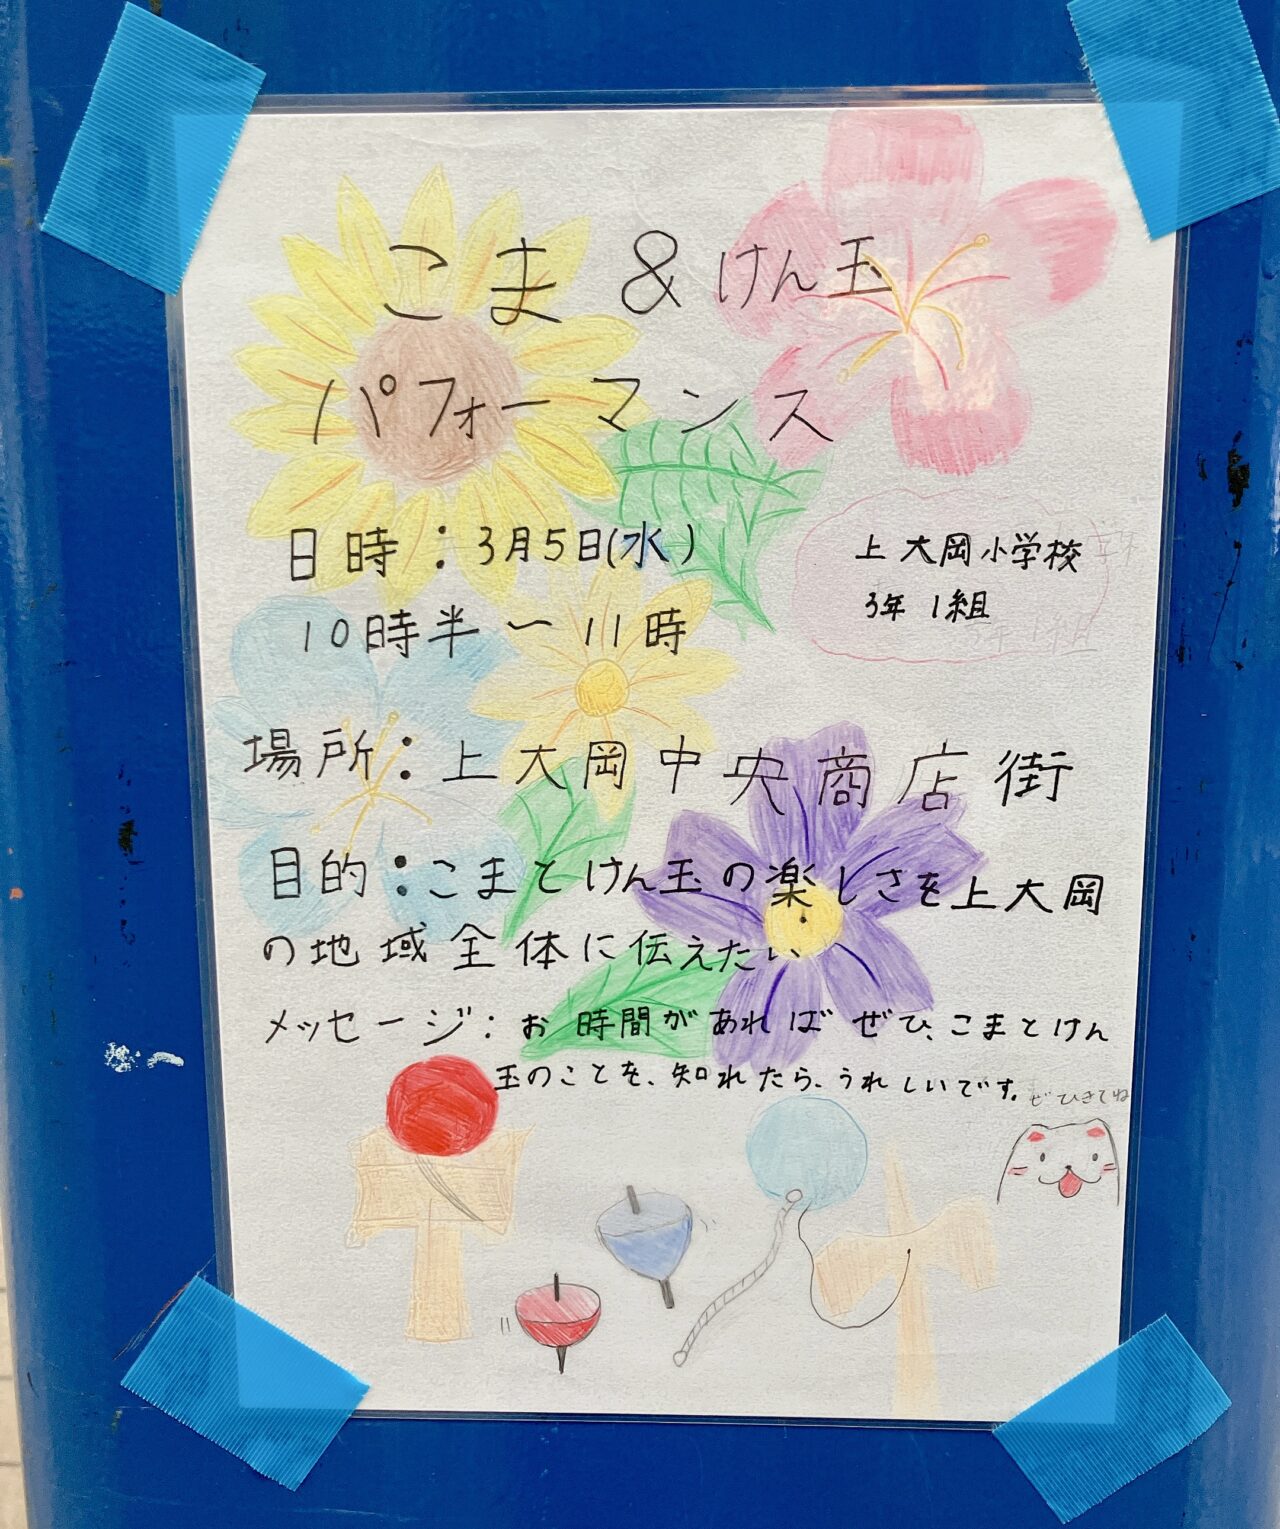 こま&けん玉
パフォーマンス
日時：3月5日(水)
10時半〜11時
上大岡小学校
3年1組
場所：上大岡中央商店街
目的：こまとけん玉の楽しさを上大岡
の地域全体に伝えたい
メッセージ：お時間があればぜひ、こまとけん
玉のことを、知れたら、うれしいです。
ぜひきてね